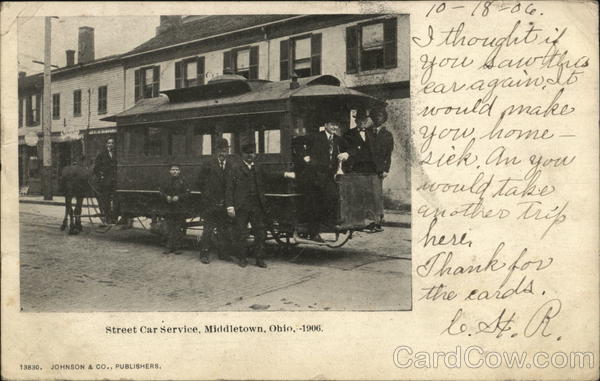 10-18-06.
I thought if
you saw this
car again, it
would make
you, home-
sick. An you
would take
another trip
here,
Thank for
the cards.
C. H. R.
Street Car Service, Middletown, Ohio,-1906.
13830. JOHNSON & CO., PUBLISHERS.
CardCow.com